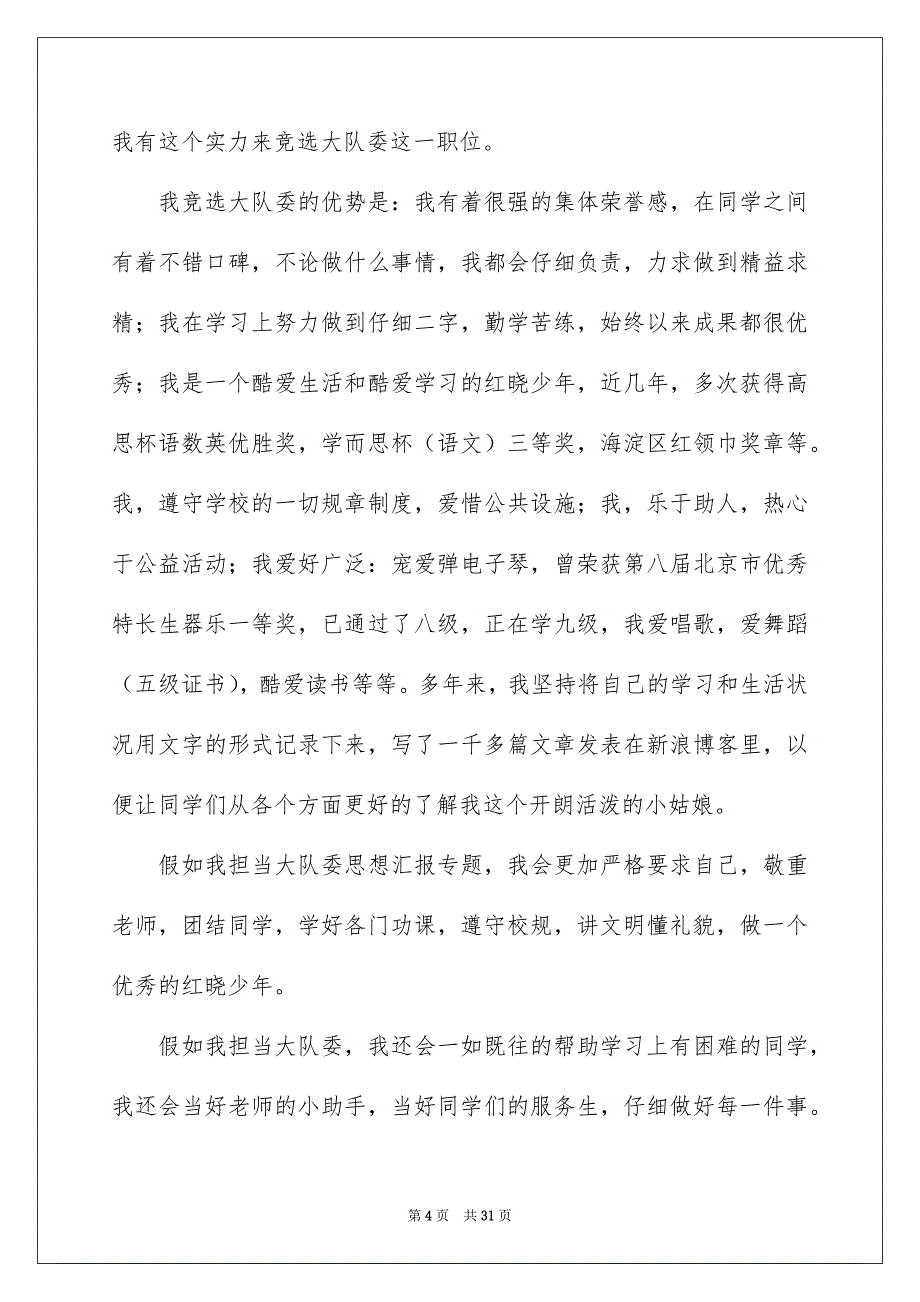 我有这个实力来竞选大队委这一职位。
我竞选大队委的优势是：我有着很强的集体荣誉感，在同学之间
有着不错口碑，不论做什么事情，我都会仔细负责，力求做到精益求
精；我在学习上努力做到仔细二字，勤学苦练，始终以来成果都很优
秀；我是一个酷爱生活和酷爱学习的红晓少年，近几年，多次获得高
思杯语数英优胜奖，学而思杯（语文）三等奖，海淀区红领巾奖章等。
我，遵守学校的一切规章制度，爱惜公共设施；我，乐于助人，热心
于公益活动；我爱好广泛：宠爱弹电子琴，曾荣获第八届北京市优秀
特长生器乐一等奖，已通过了八级，正在学九级，我爱唱歌，爱舞蹈
（五级证书），酷爱读书等等。多年来，我坚持将自己的学习和生活状
况用文字的形式记录下来，写了一千多篇文章发表在新浪博客里，以
便让同学们从各个方面更好的了解我这个开朗活泼的小姑娘。
假如我担当大队委思想汇报专题，我会更加严格要求自己，敬重
老师，团结同学，学好各门功课，遵守校规，讲文明懂礼貌，做一个
优秀的红晓少年。
假如我担当大队委，我还会一如既往的帮助学习上有困难的同学，
我还会当好老师的小助手，当好同学们的服务生，仔细做好每一件事。
第 4 页 共 31 页